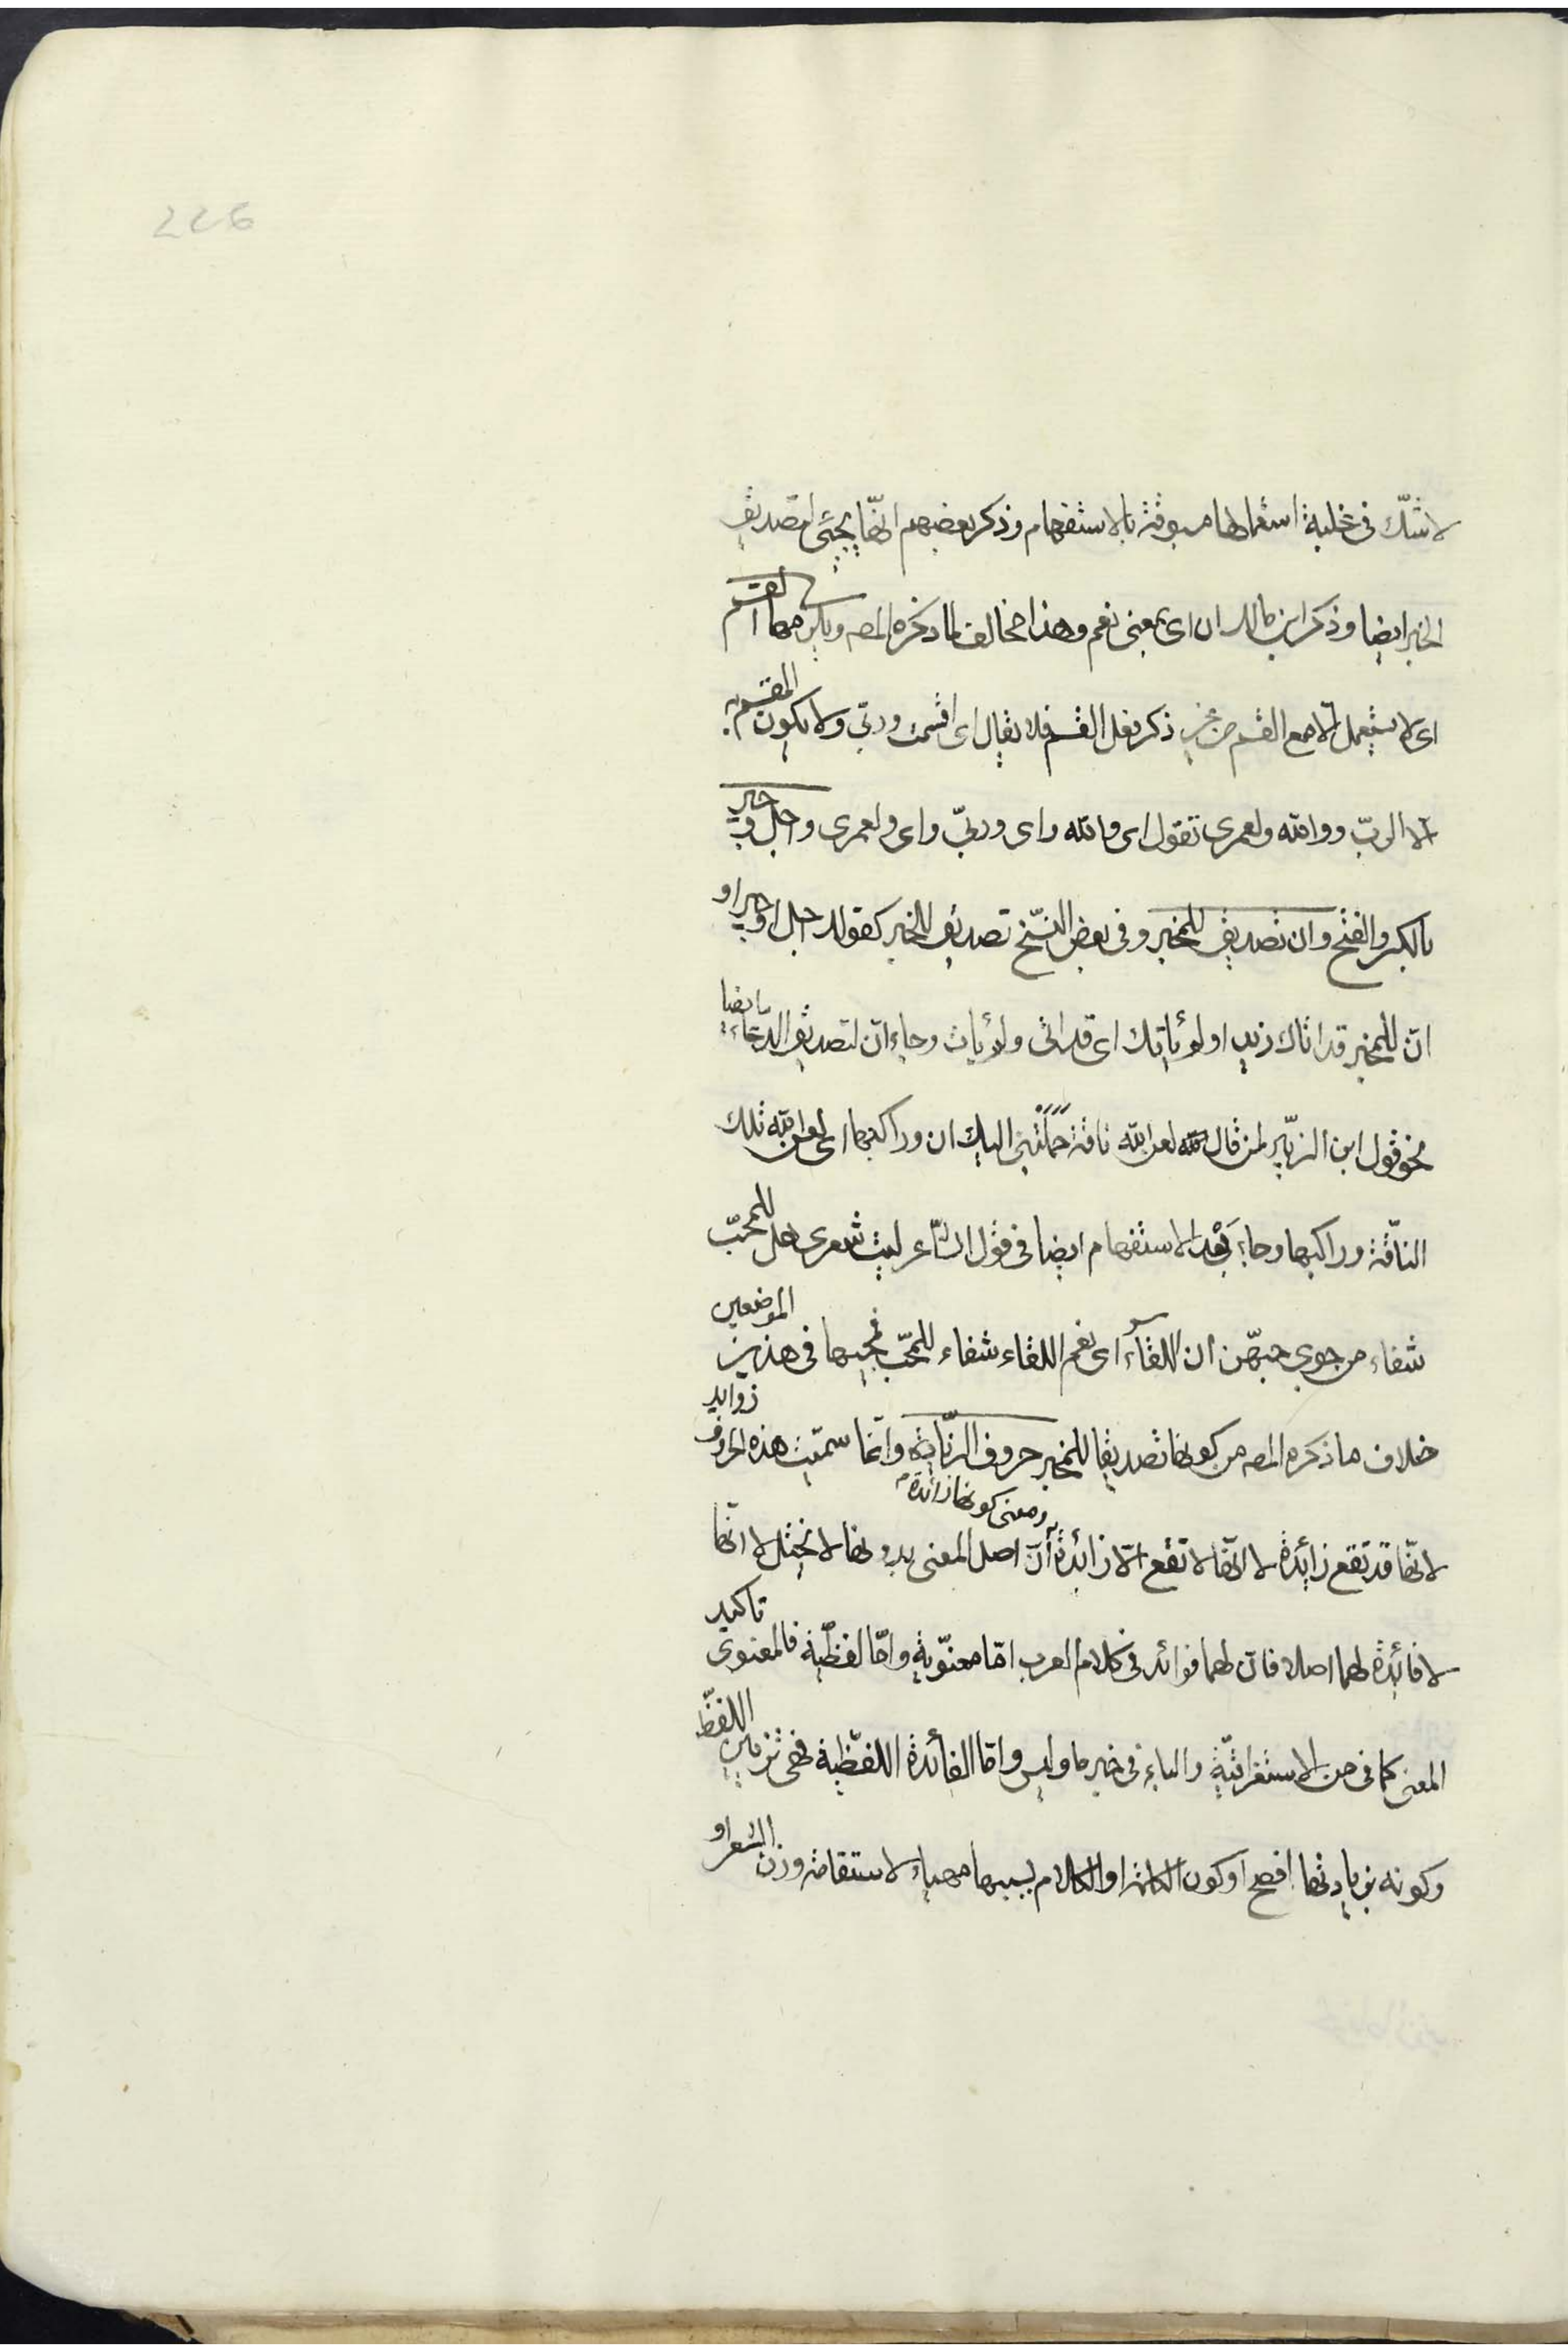 226
لا شكّ فى غلبة استعمالها مسبوقة بالاستفهام وذكر بعضهم انّها تجئ لتصديق
الخبر ايضا وذكر ابن مالك ان اى بمعنى نعم وهذا مخالف لما ذكره المصـ ويلزمها القسم
اى لا يستعمل الّا مع القسم من غير ذكر فعل القسم فلا يقال اى اقسمت وربّى ولا يكون المقسم به
الّا الربّ ووالله ولعمرى تقول اى والله واى وربّى واى ولعمرى واجل وجير
بالكسر والفتح وان تصديق للمخبر وفى بعض النسّخ تصديق للخبر كقولك اجل او جير او
انّ للمخبر قد اتاك زيد او لم ياتك اى قد اتى ولم يات وجاء انّ لتصديق الدّعاء ايضا
نحو قول ابن الزبير لمن قال له لعن الله ناقة حَمَلَتْنِى اليك ان وراكبها اى لعن الله تلك
النّاقة وراكبها وجاء بَعْد الاستفهام ايضا فى قول الشّاعر ليت شعرى هل للمحبّ
شفاء من جوى حبهّن ان اللقاء اى نعم اللقاء شفاء للمحّب فمجيئها فى هذين الموضعين
خلاف ما ذكره المصـ من كونها تصديقا للمخبر حروف الزّيادة وانّما سمّيت هذه الحروف زوايد
لانّها قد تقع زائدة لا انّها لا تقع الّا زائدة ومعنى كونها زائدة أنّ اصل المعنى بدونها لا يختل لا انّها
لا فائدة لهما اصلا فانّ لهما فوائد فى كلام العرب امّا معنوّية وامّا لفظّية فالمعنوى تاكيد
المعنى كما فى من الاستغراقيّة والباء فى خبر ما وليس وامّا الفائدة اللفظّية فهى تزيين اللفظّ
وكونه بزيادتها افصح او كون الكلمة او الكلام بسببها مهياء لاستقامة وزن الشعر او